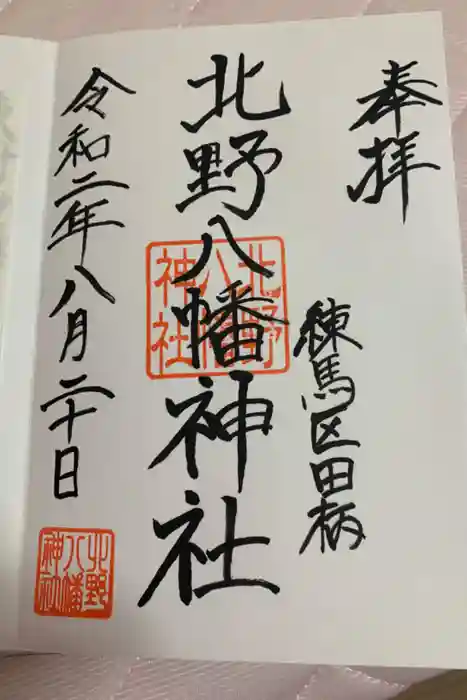 奉拝
練馬区田柄
北野八幡神社
北野
八幡
神社
令和二年八月二十日
北野
八幡
神社